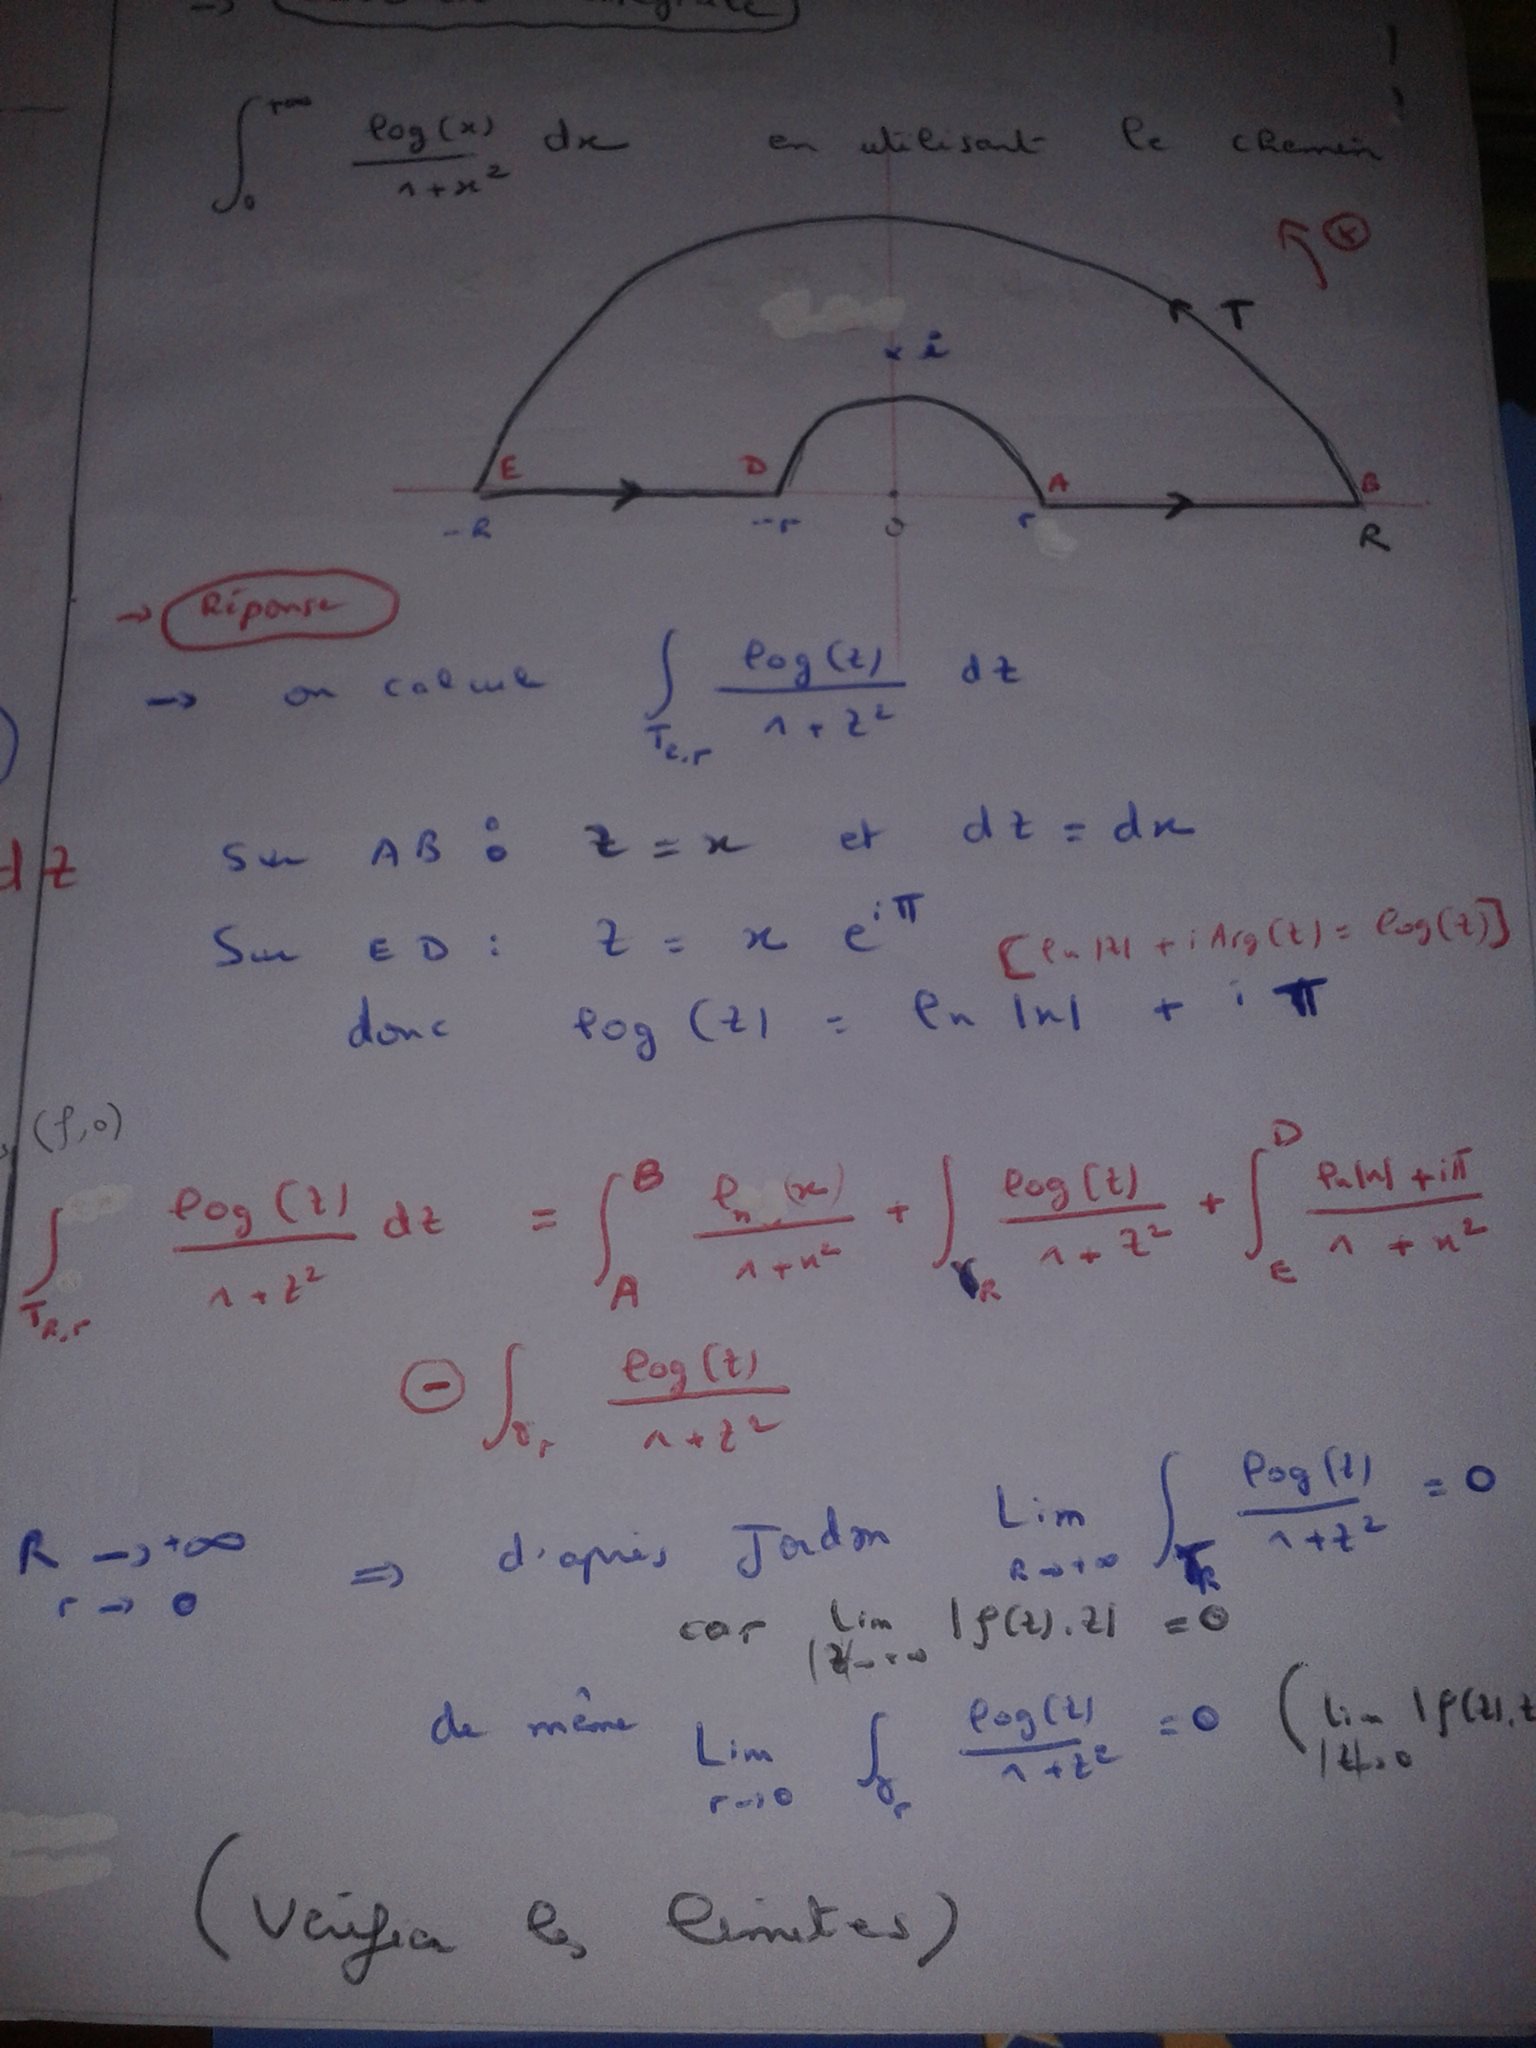 ∫₀^{+∞} log(x) / 1+x² dx en utilisant le chemin
T
i
E D A B
-R -r 0 r R
→ Réponse
→ on calcule ∫_{T_{R,r}} log(z) / 1+z² dz
Sur AB : z = x et dz = dx
dz
Sur ED : z = x e^{iπ} [ln|z| + i Arg(z) = log(z)]
donc log(z) = ln|x| + iπ
(f,0)
∫_{T_{R,r}} log(z) / 1+z² dz = ∫_A^B ln(x) / 1+x² + ∫_{γ_R} log(z) / 1+z² + ∫_E^D ln|x| + iπ / 1+x²
⊖ ∫_{γ_r} log(z) / 1+z²
R → +∞
r → 0 ⇒ d'après Jordan Lim_{R→+∞} ∫_{γ_R} log(z) / 1+z² = 0
car lim_{|z|→+∞} |f(z).z| = 0
de même Lim_{r→0} ∫_{γ_r} log(z) / 1+z² = 0 (lim_{|z|→0} |f(z).z
(Vérifier les limites)